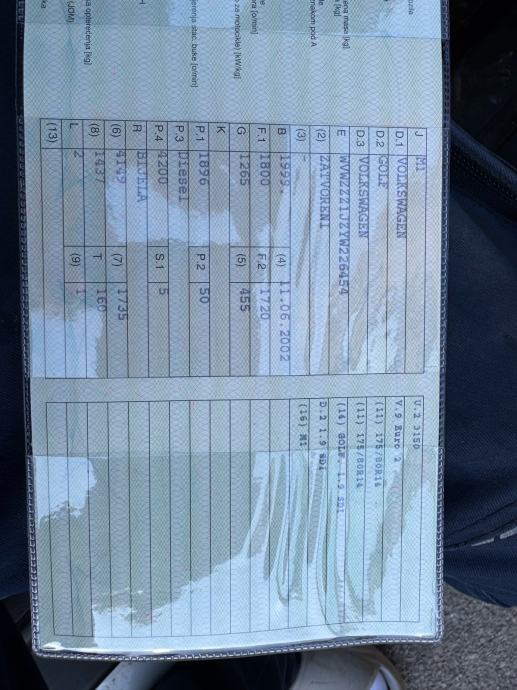 J M1
D.1 VOLKSWAGEN
D.2 GOLF
D.3 VOLKSWAGEN
E WVWZZZ1JZYW226454
(2) ZATVORENI
(3) -
B 1999. (4) 11.06.2002
F.1 1800 F.2 1720
G 1265 (5) 455
K
P.1 1896 P.2 50
P.3 Diesel
P.4 4200 S.1 5
R BIJELA
(6) 4149 (7) 1735
(8) 1437 T 160
L 2 (9) 1
(13)
V.2 3150
V.9 Euro 2
(11) 175/80R14
(11) 175/80R14
(14) GOLF, 1.9 SDI
D.2 1.9 SDI
(16) M1
masa [kg]
[kg]
znakom pod A
[o/min]
za motocikle) [kW/kg]
stac. buke [o/min]
opterećenja [kg]